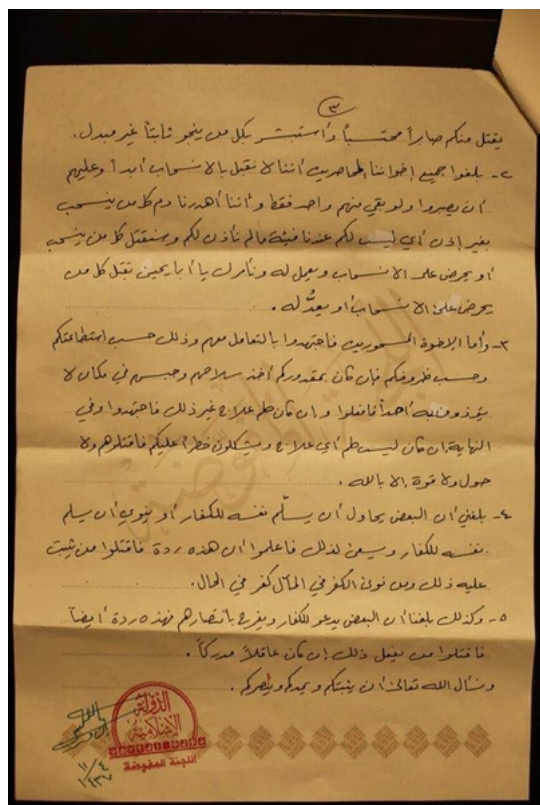 ٣
يقتل منكم صابراً محتسباً وأستبشر بكل من ينجو ثابتاً غير مبدل.
٢- بلغوا جميع إخواننا المحاصرين أننا لا نقبل بالانسحاب أبداً وعليهم
أن يصبروا ولو بقي منهم واحد فقط وأننا أهدرنا دم كل من ينسحب
بغير إذن أي ليست لكم عندنا فيئة مالم نأذن لكم وسنقتل كل من ينسحب
أو يحرض على الانسحاب ويعمل له ونأمرك يا أبا يحيى بقتل كل من
يحرض على الانسحاب أو يعدُّ له.
٣- وأما الإخوة المسحورين فاجتهدوا بالتعامل معهم وذلك حسب استطاعتكم
وحسب ظروفكم فإن كان بمقدوركم أخذ سلاحهم وحبسهم في مكان لا
يؤذون به أحداً فافعلوا وإن كان لهم علاج غير ذلك فاجتهدوا وفي
النهاية إن كان ليس لهم أي علاج ويشكلون خطراً عليكم فاقتلوهم ولا
حول ولا قوة إلا بالله.
٤- بلغني أن البعض يحاول أن يسلّم نفسه للكفار أو ينوي أن يسلم
نفسه للكفار ويسعى لذلك فاعلموا أن هذه ردة فاقتلوا من يثبت
عليه ذلك ومن نوى الكفر في المآل كفر في الحال.
٥- وكذلك بلغنا أن البعض يدعو للكفار ويفرح بانتصارهم فهذه ردة أيضاً
فاقتلوا من يفعل ذلك إن كان عاقلاً مدركاً.
ونسأل الله تعالى أن يثبتكم ويمدكم وينصركم.
الدولة
الإسلامية
اللجنة المفوضة